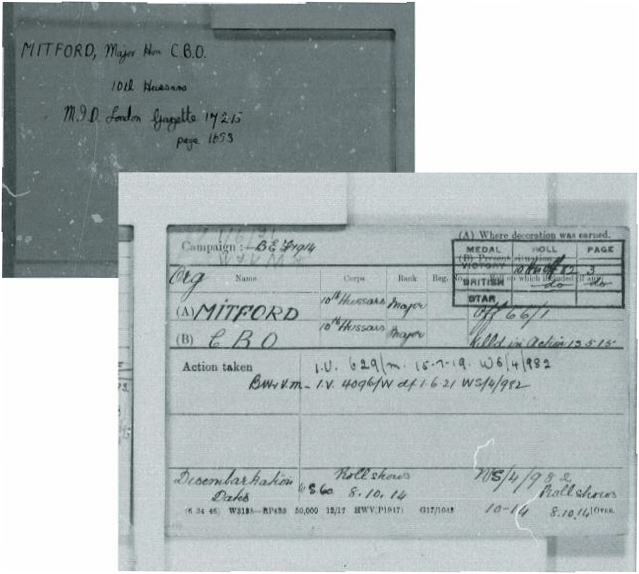 MITFORD, Major Hon C.B.O.
10th Hussars
M.I.D. London Gazette 17 2 15
page 1653
(A) Where decoration was earned.
Campaign :- B.E.F 1914
(B) Present situation
MEDAL ROLL PAGE
VICTORY 3
BRITISH do do
STAR
Org Name Corps Rank Reg. No. Roll on which included (if any)
(A) MITFORD 10th Hussars Major Off 66/1
(B) C B O 10th Hussars Major Killd in Action 13.5.15
Action taken I.V. 629/m. 15-7-19. WS/4/982
BW&V.M - I.V. 4096/W dt 1-6-21 WS/4/982
Disembarkation Roll shows WS/4/982
Dates 8.10.14 Roll shows
10-14 8.10.14
(6 34 46) W3188—RP433 50,000 12/17 HWV(P1947) G17/1043 [OVER.